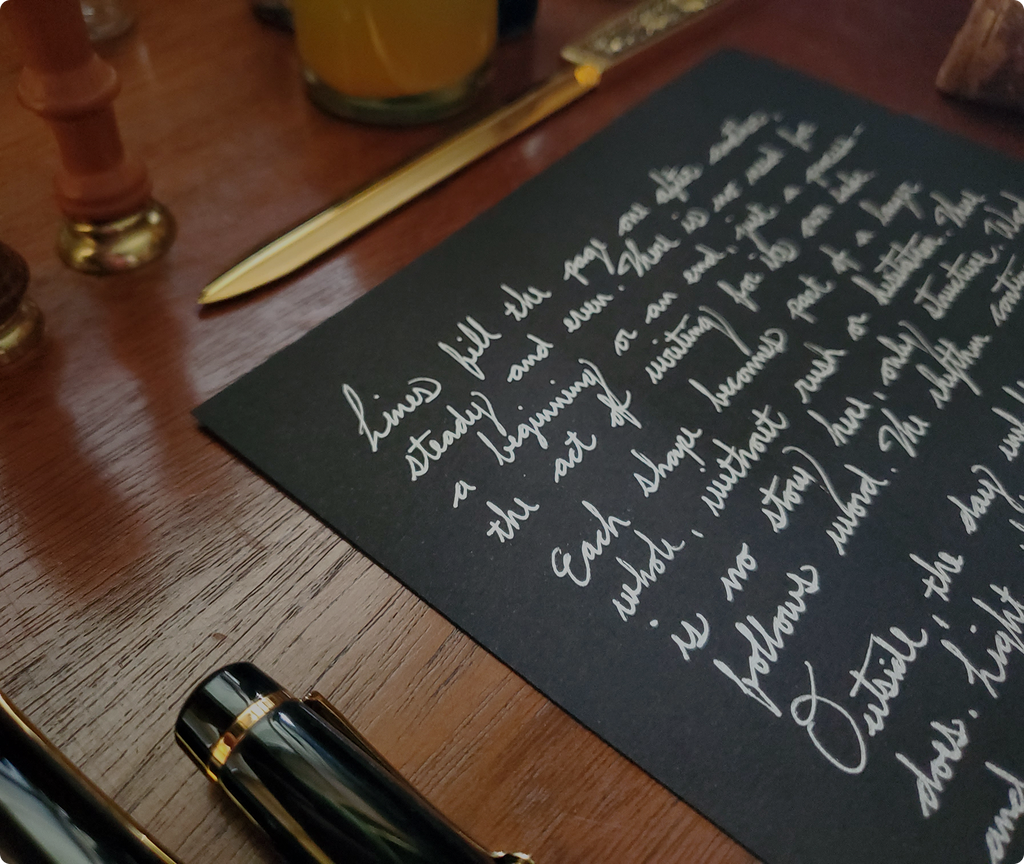 Lines fill the page one after another,
steady and even. There is no need for
a beginning or an end, just a quiet
the act of writing for its own sake
Each shape becomes part of a larger
whole, without rush or hesitation. There
is no story here, only structure. Word
follows word. The rhythm
Outside, the day
does. Light
and